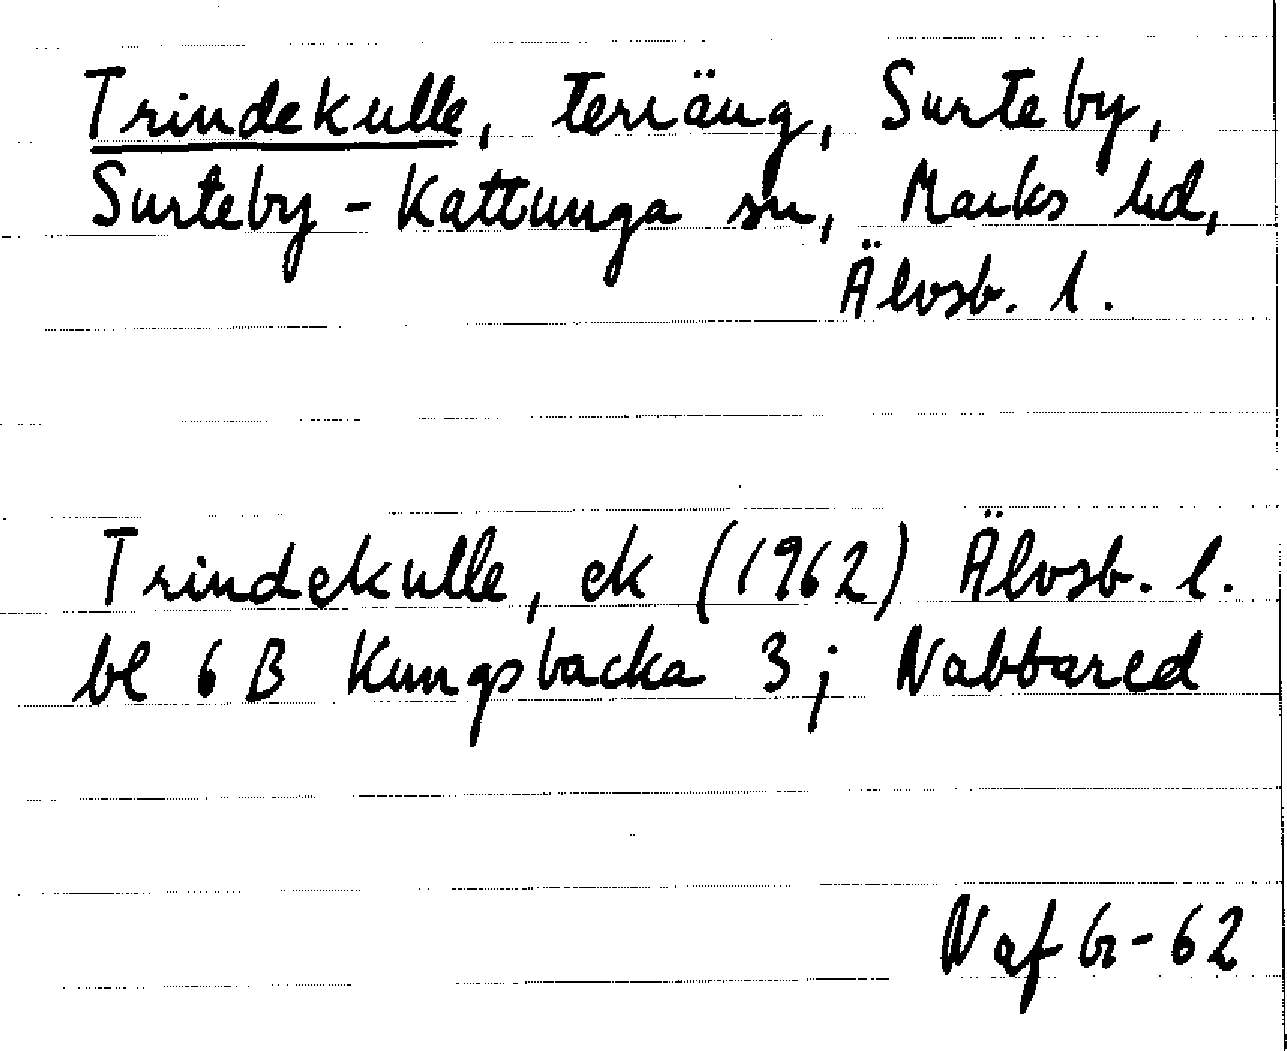 Trindekulle, terräng, Surteby,
Surteby-Kattunga sn, Marks hd,
Älvsb. l.
Trindekulle, ek (1962) Älvsb. l.
bl 6 B Kungsbacka 3; Nabbared
Naf Gr-62